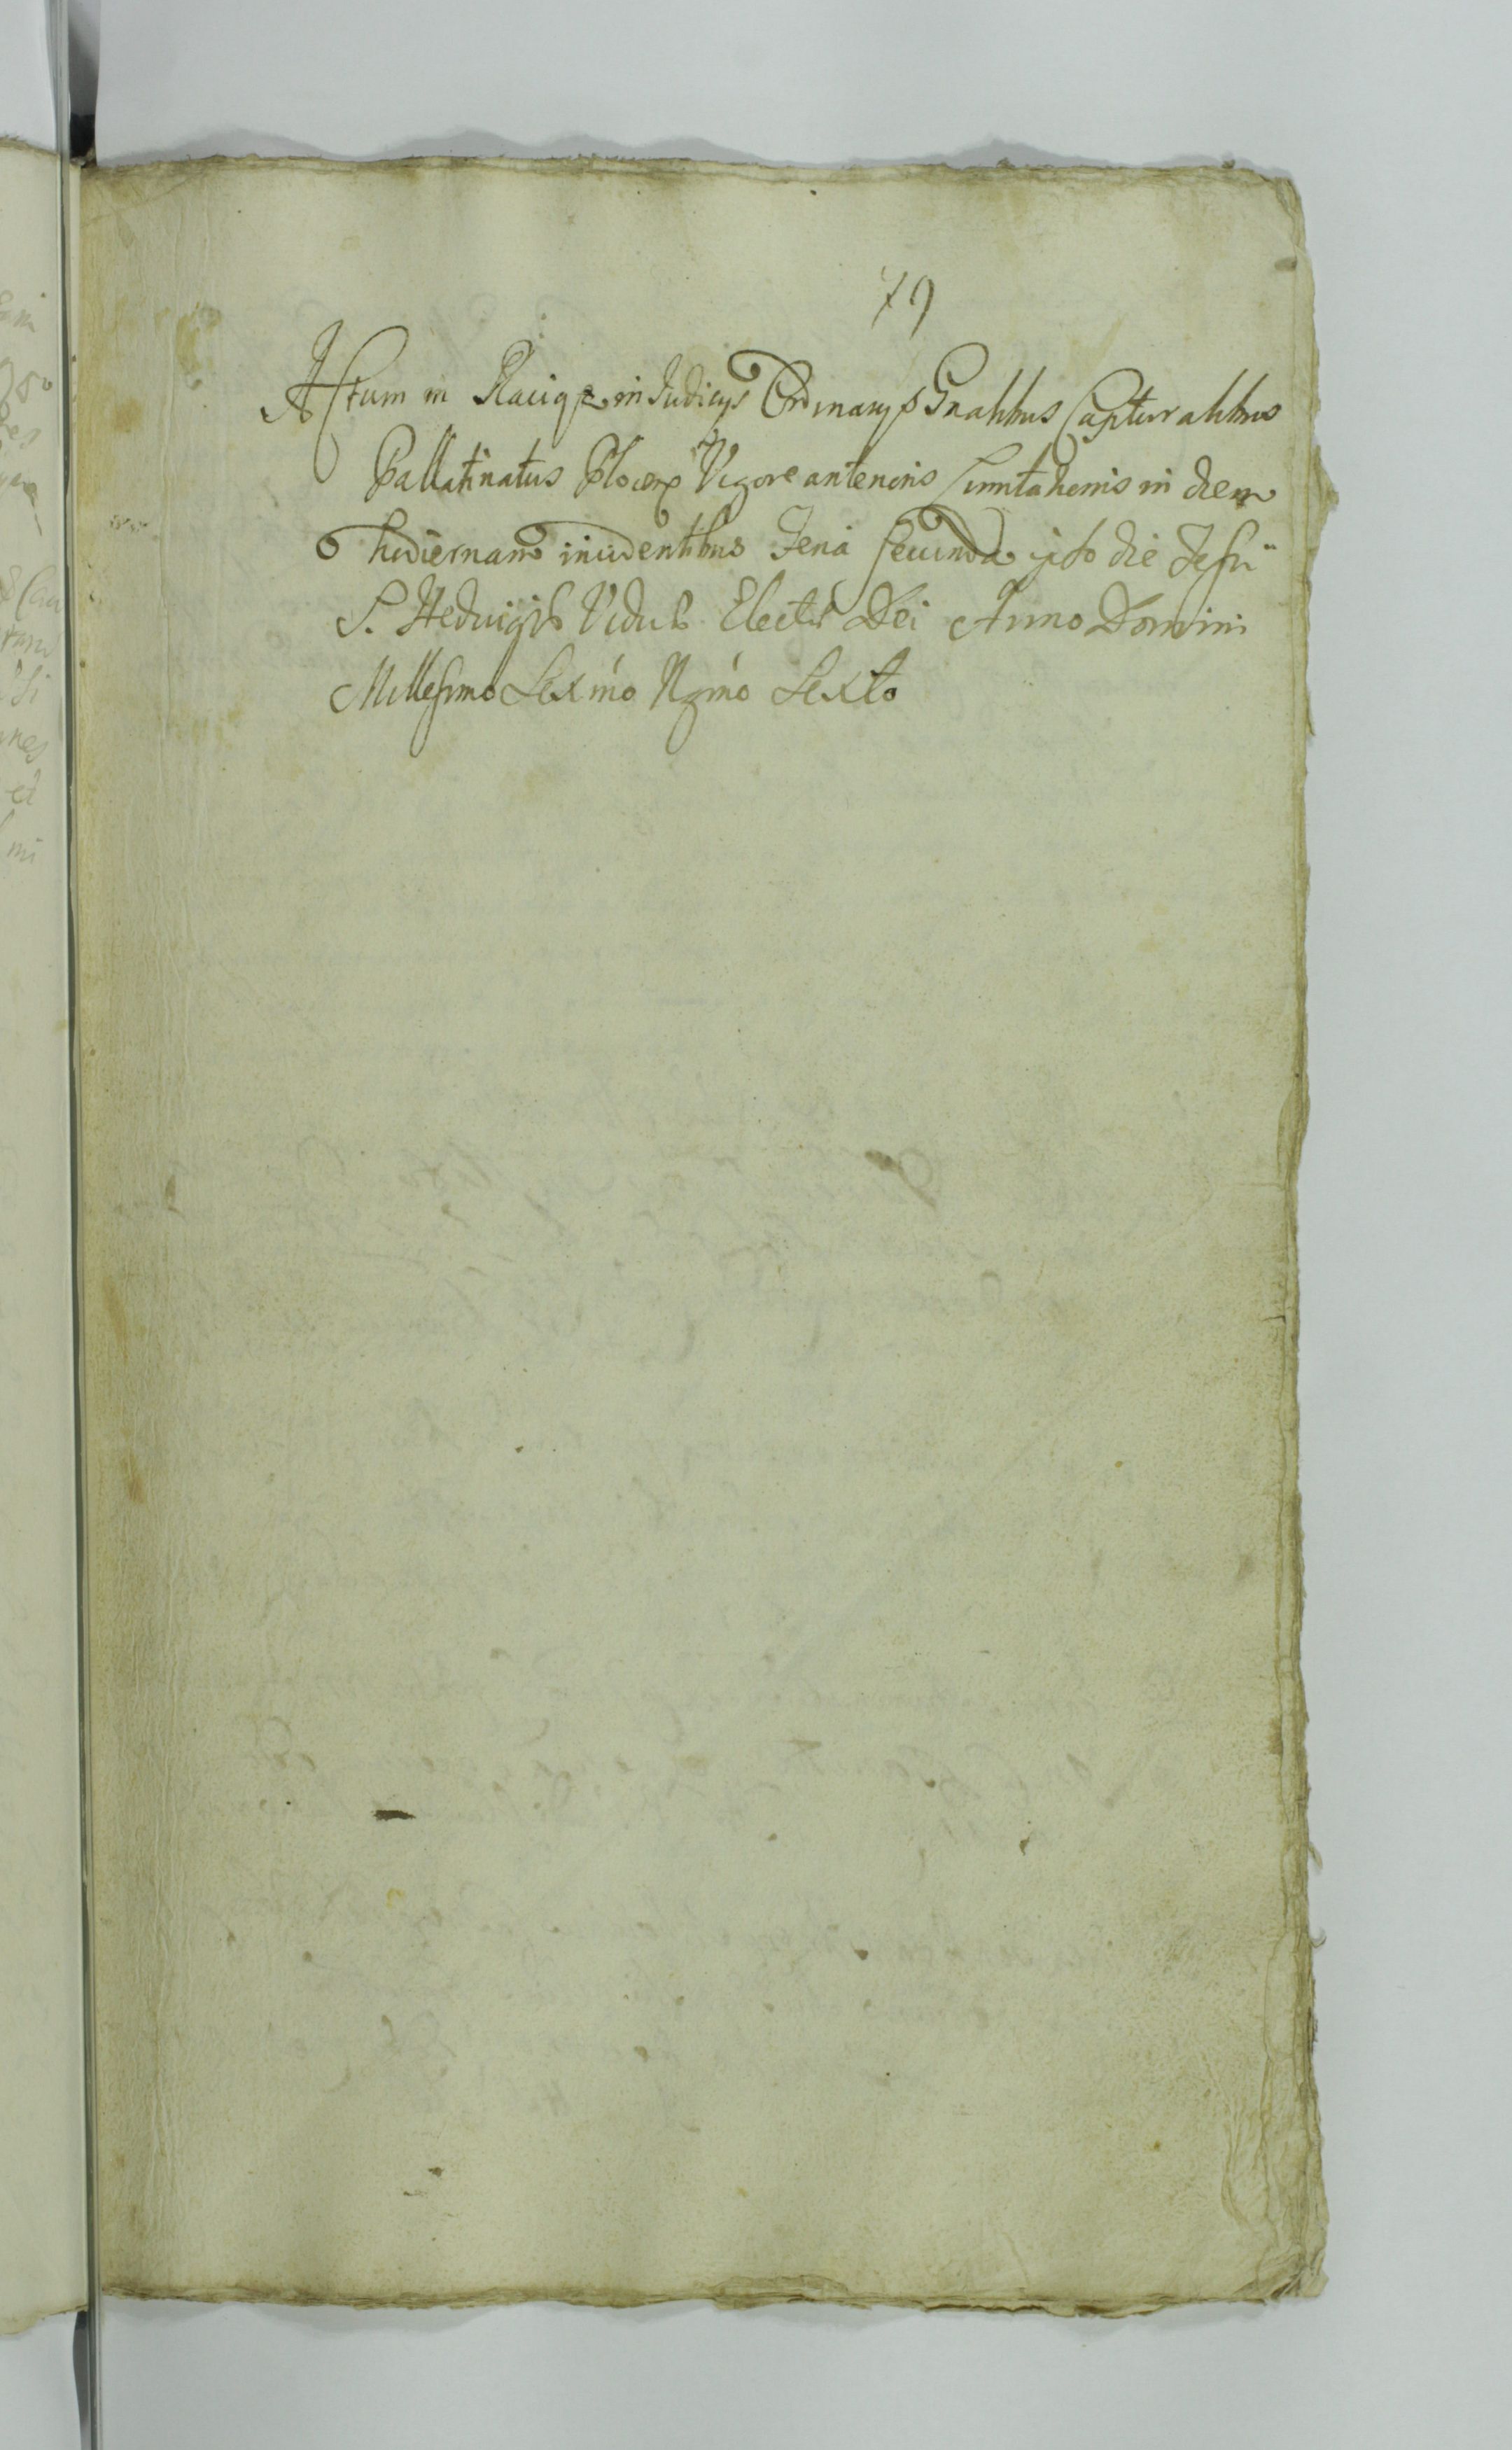 79
Actum in Raciąz in Judicys Ordinarys Gnalibus Capturalibus
Pallatinatus Plocen Vigore anterioris Limitationis in diem
hodiernam incidentibus Feria secunda ipso die Festi
S. Hedvigis Viduæ Electæ Dei Anno Domini
Millesimo Sexmo Ngmo Sexto